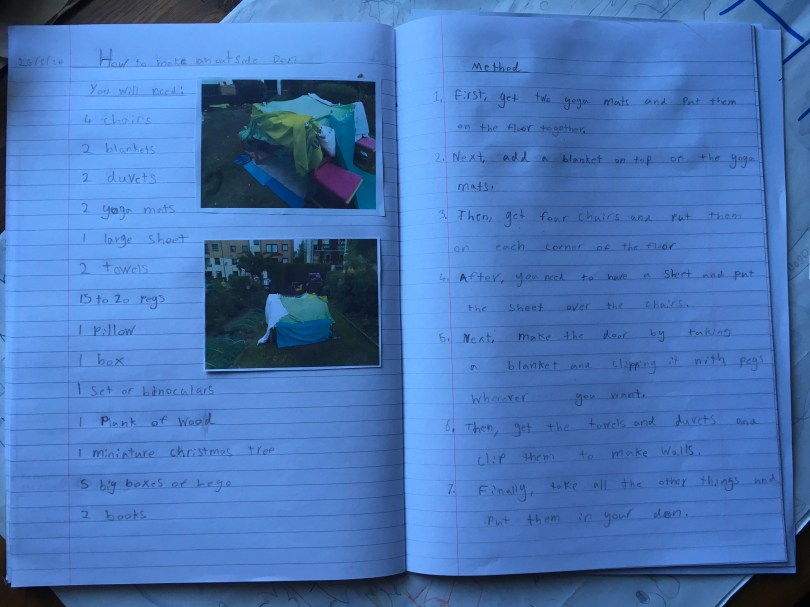 How to make an outside Den
You will need:
4 chairs
2 blankets
2 duvets
2 yoga mats
1 large sheet
2 towels
15 to 20 pegs
1 Pillow
1 box
1 set of binoculars
1 Plank of wood
1 miniature christmas tree
5 big boxes of Lego
2 books
Method
1. First, get two yoga mats and put them
on the floor together.
2. Next, add a blanket on top of the yoga
mats.
3. Then, get four chairs and put them
on each corner of the floor
4. After, you need to have a sheet and put
the sheet over the chairs.
5. Next, make the door by taking
a blanket and clipping it with pegs
you want.
6. Then, get the towels and duvets and
clip them to make walls.
7. Finally, take all the other things and
put them in your den.